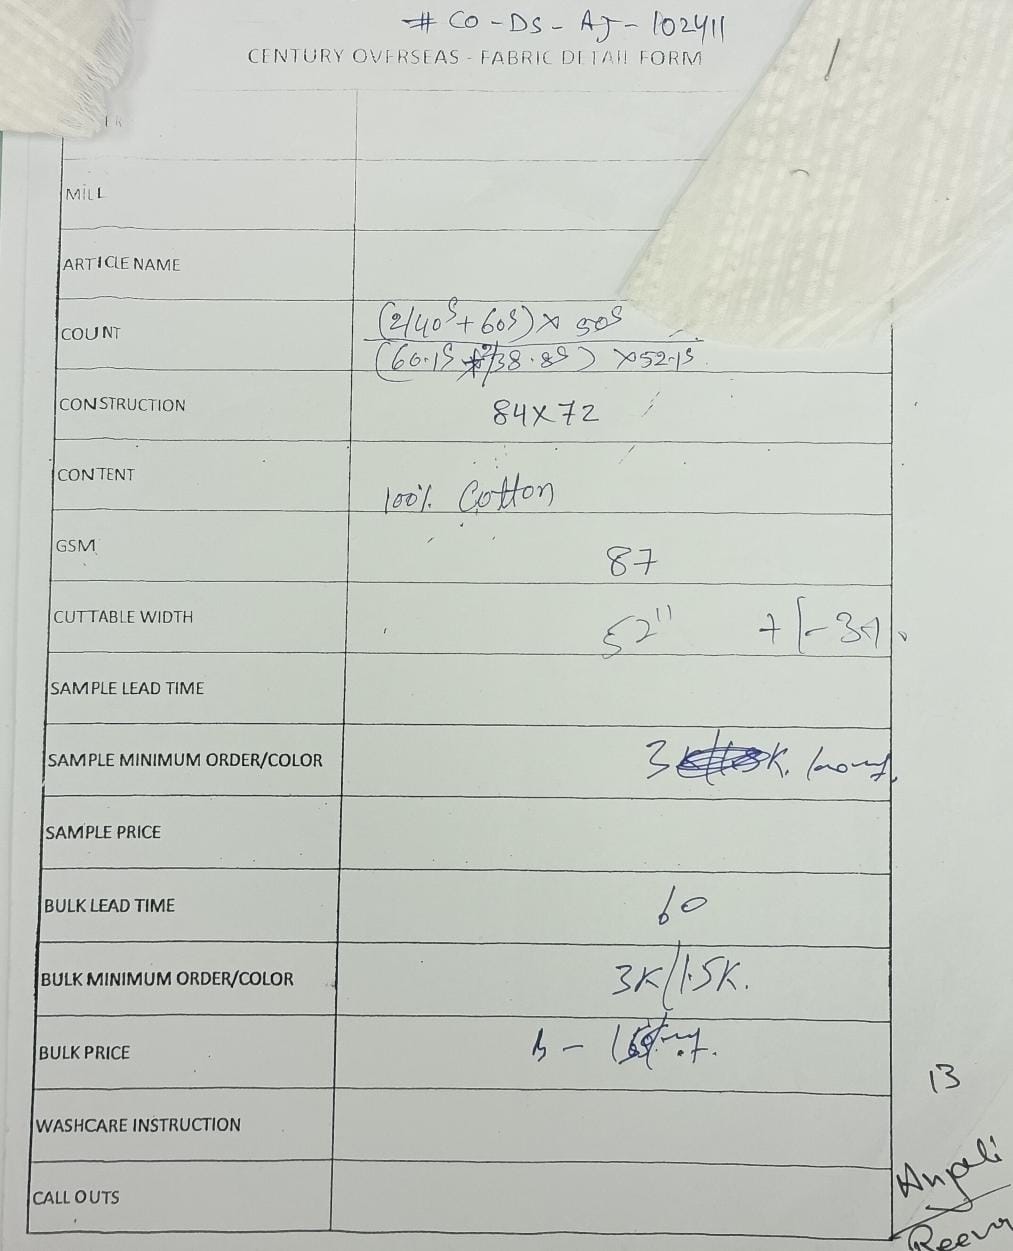 # CO-DS-AJ-102411
CENTURY OVERSEAS - FABRIC DETAIL FORM
MILL
ARTICLE NAME
COUNT (2/40s+60s) x 50s
(60.1s 2/38.8s) x52.1s
CONSTRUCTION 84x72
CONTENT 100% Cotton
GSM 87
CUTTABLE WIDTH 52" +/-3%
SAMPLE LEAD TIME
SAMPLE MINIMUM ORDER/COLOR 3 K.
SAMPLE PRICE
BULK LEAD TIME 60
BULK MINIMUM ORDER/COLOR 3K/1.5K.
BULK PRICE
13
WASHCARE INSTRUCTION
Anjali
CALL OUTS